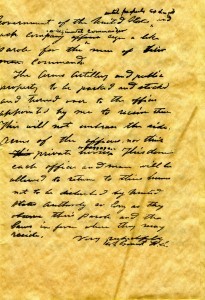 until properly
Government of the United States, and
each company
sign a like
parole for the men of their
Commands
The Arms, Artillery and public
property to be parked and stacked
and turned over to the officer
appointed by me to receive them
This will not embrace the side
Arms of the officers, nor their
private
each officer and man will be
allowed to return to their homes
not to be disturbed by United
States Authority so long as they
observe their parole and the
laws in force where they may
reside.
Very